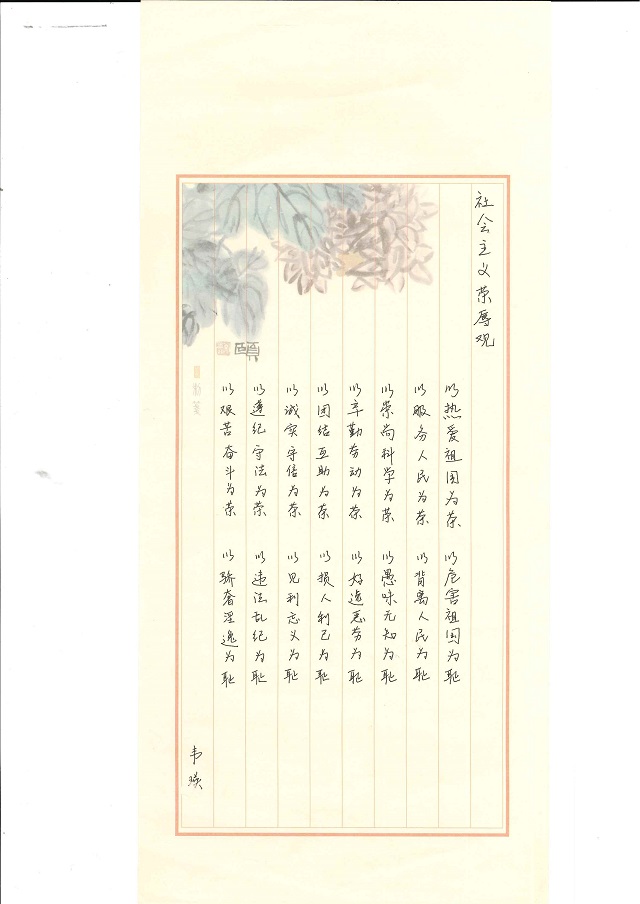 社会主义荣辱观
以热爱祖国为荣 以危害祖国为耻
以服务人民为荣 以背离人民为耻
以崇尚科学为荣 以愚昧无知为耻
以辛勤劳动为荣 以好逸恶劳为耻
以团结互助为荣 以损人利己为耻
以诚实守信为荣 以见利忘义为耻
以遵纪守法为荣 以违法乱纪为耻
以艰苦奋斗为荣 以骄奢淫逸为耻
韦瑛
頤